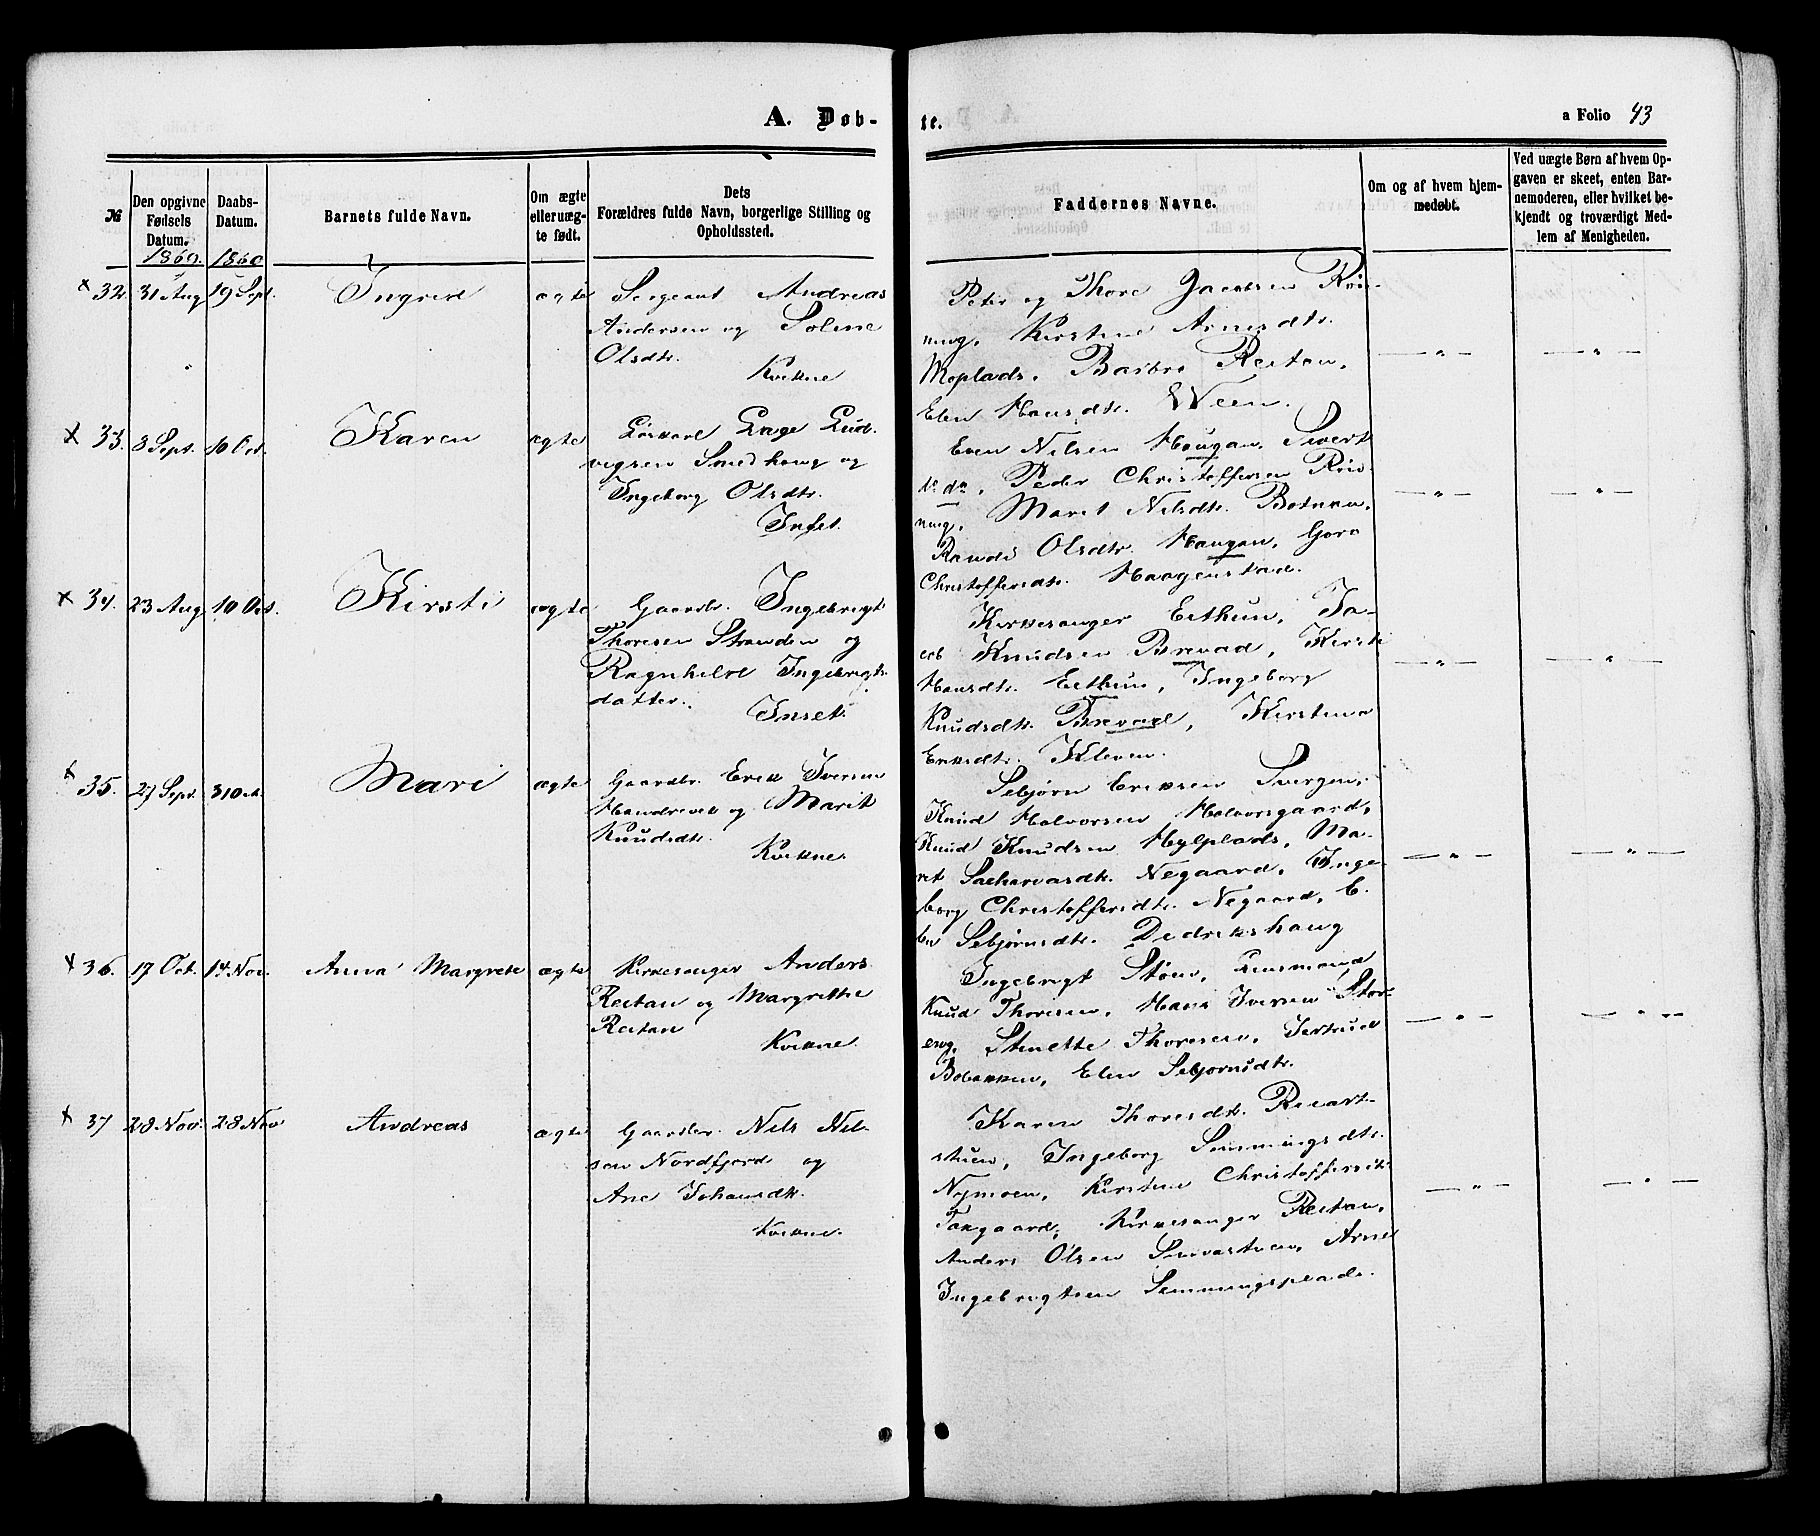 A. Døb-
te.
a Folio 43
№
Den opgivne Fødsels Datum.
Daabs-Datum.
Barnets fulde Navn.
Om ægte eller uæg-te født.
Dets Forældres fulde Navn, borgerlige Stilling og Opholdssted.
Faddernes Navne.
Om og af hvem hjem-medøbt.
Ved uægte Børn af hvem Op-gaven er skeet, enten Bar-nemoderen, eller hvilket be-kjendt og troværdigt Med-lem af Menigheden.
1860. 1860
× 32. 31 Aug 19 Sept. Ingrid ægte Sergeant Andreas
Andersen og Soline
Olsdtr.
Kvikne
Peter og Thore Jacobsen Røs-
ning, Kirstine Arnesdtr.
Moplads, Barbro Reitan,
Elen Hansdtr. Ween.
× 33. 3 Sept. 10 Oct. Karen ægte Lage Lud-
vigsen Smedhaug og
Ingeborg Olsdtr.
Inset.
Even Nilsen Haugan, Sivert
do do, Peder Christoffersen Røs-
ning, Marit Nilsdtr. Botnan,
Randi Olsdtr. Haugan, Goro
Christoffersdtr. Haagenstad.
× 34. 23 Aug 10 Oct. Kirsti ægte Gaardbr. Ingebrigt
Thoresen Stranden og
Ragnhild Ingebrigts-
datter.
Inset.
Kirkesanger Eithun, Ja-
cob Knudsen Brevad, Kirsti
Hansdtr. Eithun, Ingeborg
Knudsdtr. Brevad, Kirstine
Eriksdtr. Kleven.
× 35. 27 Sept. 31 Oct. Mari ægte Gaardbr. Erik Iversen
og Marit
Knudsdtr.
Kvikne
Sebjørn Eriksen
Knud Halvorsen Halvorsgaard,
Knud Knudsen Hylplads, Ma-
rit Sachariasdtr. Negaard, Inge-
borg Christoffersdtr. Negaard, E-
len Sebjørnsdtr. Dedrikshaug
× 36. 17 Oct. 14 Nov. Anna Margrete ægte Kirkesanger Anders
Reitan og Margrethe
Reitan
Kvikne.
Ingebrigt Støen, Lensmand
Knud Thoresen, Hans Iversen Stor-
eng, Stinette Thoresen, Jertrud
Bobakken, Elen Sebjørnsdtr.
× 37 28 Nov. 28 Nov Andreas ægte Gaardbr. Nils Nil-
sen Nordfjord og
Ane Johansdtr.
Kvikne.
Karen Thoresdtr.
stuen, Ingeborg Semmingsdtr.
Nymoen, Kirstine Christoffersdtr.
Kirkesanger Reitan,
Anders Olsen Arne
Ingebrigtsen Semmingsplads.